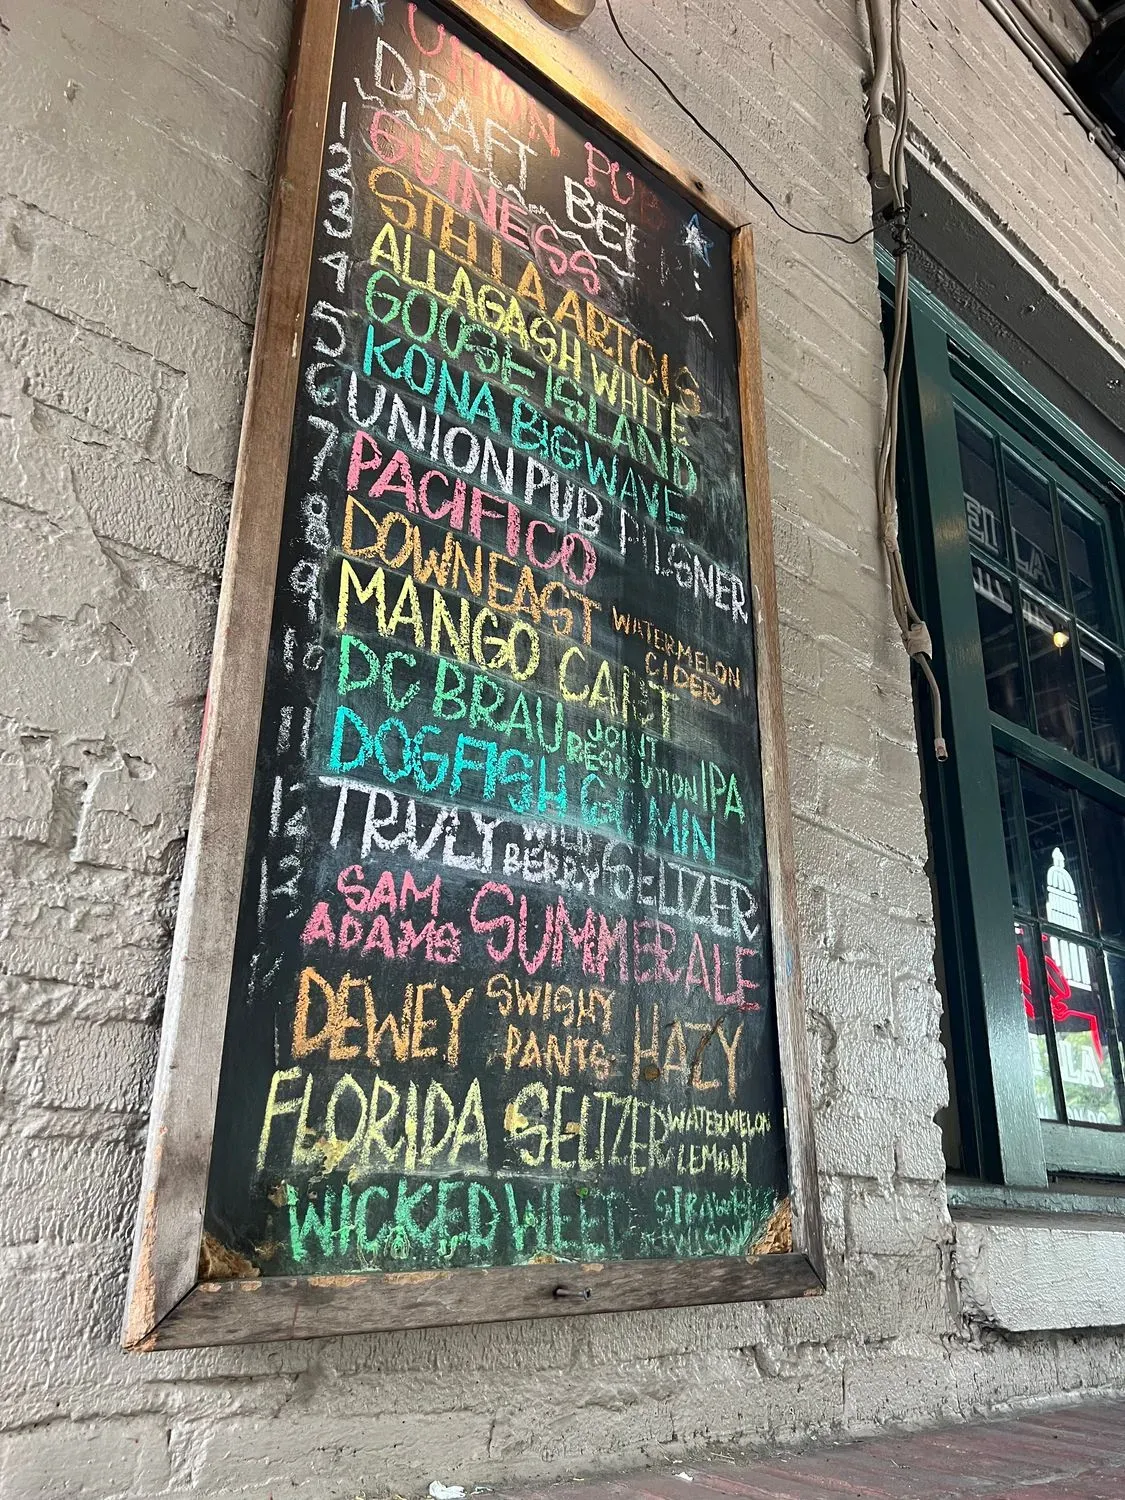 UNION PUB
DRAFT BEE
1 GUINESS
2 STELLA ARTOIS
3 ALLAGASH WHITE
4 GOOSE ISLAND
5 KONA BIG WAVE
6 UNION PUB PILSNER
7 PACIFICO
8 DOWNEAST WATERMELON CIDER
9 MANGO CART
10 DC BRAU JOINT RESOLUTION IPA
11 DOGFISH 60 MIN
12 TRULY WILD BERRY SELTZER
13 SAM ADAMS SUMMER ALE
DEWEY SWISHY PANTS HAZY
FLORIDA SELTZER WATERMELON LEMON
WICKED WEED